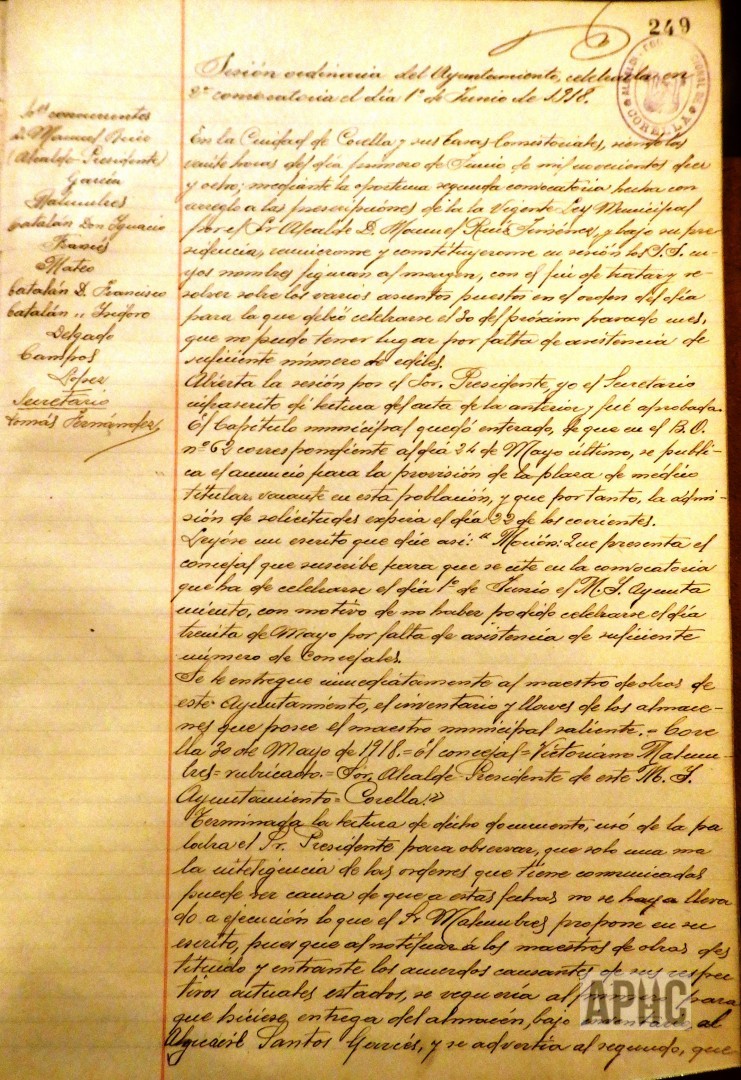 249
Sesión ordinaria del Ayuntamiento, celebrada en
2ª convocatoria el día 1º de Junio de 1918.
ALCALDÍA CORELLA
Srs concurrentes
D. Manuel
Alcalde-Presidente
García
Malumbres
Catalán Don Ignacio
Francés
Mateo
Catalán D. Francisco
Catalán " Isidoro
Delgado
Campos
López
Secretario
Tomás Fernández
En la Ciudad de Corella y sus Casas Consistoriales, siendo las
veinte horas del día primero de Junio de mil novecientos diez
y ocho; mediante la oportuna segunda convocatoria hecha con
arreglo a las prescripciones de la la Vigente Ley Municipal
por el Sr Alcalde D. Manuel Jiménez, y bajo su pre
sidencia, reunieronse y constituyeronse en sesión los S.S. cu-
yos nombres figuran al margen, con el fin de tratar y re-
solver sobre los varios asuntos puestos en el orden del día
para la que debió celebrarse el 30 del próximo pasado mes,
que no pudo tener lugar por falta de asistencia de
suficiente número de ediles.
Abierta la sesión por el Sor. Presidente, yo el Secretario
infrascrito dí lectura del acta de la anterior y fué aprobada.
El Capítulo municipal quedó enterado, de que en el B.O.
nº 62 correspondiente al día 24 de Mayo último, se publi-
ca el anuncio para la provisión de la plaza de médico
titular vacante en esta población, y que por tanto, la admi-
sión de solicitudes expira el día 22 de los corrientes.
Leyóse un escrito que dice así: "Moción: Que presenta el
concejal que suscribe para que se cite en la convocatoria
que ha de celebrarse el día 1º de Junio el M. I. Ayunta
miento, con motivo de no haber podido celebrarse el día
treinta de Mayo por falta de asistencia de suficiente
número de Concejales.
Se le entregue inmediatamente al maestro de obras de
este Ayuntamiento, el inventario y llaves de los almace-
nes que posee el maestro municipal saliente. = Core
lla 30 de Mayo de 1918. = El concejal = Victoriano Malum-
bres = rubricado. = Sor. Alcalde Presidente de este M. I.
Ayuntamiento = Corella."
Terminada la lectura de dicho documento, usó de la pa
labra el Sr. Presidente para observar, que solo una ma
la inteligencia de las ordenes que tiene comunicadas
puede ser causa de que a estas fechas no se haya lleva
do a ejecución lo que el Sr Malumbres propone en su
escrito, pues que al notificar á los maestros de obras des
tituido y entrante los acuerdos causantes de sus respec
tivos actuales estados, se requería al primero para
que hiciese entrega del almacén, bajo inventario, al
Alguacil Santos Garcés, y se advertía al segundo, que
APHC